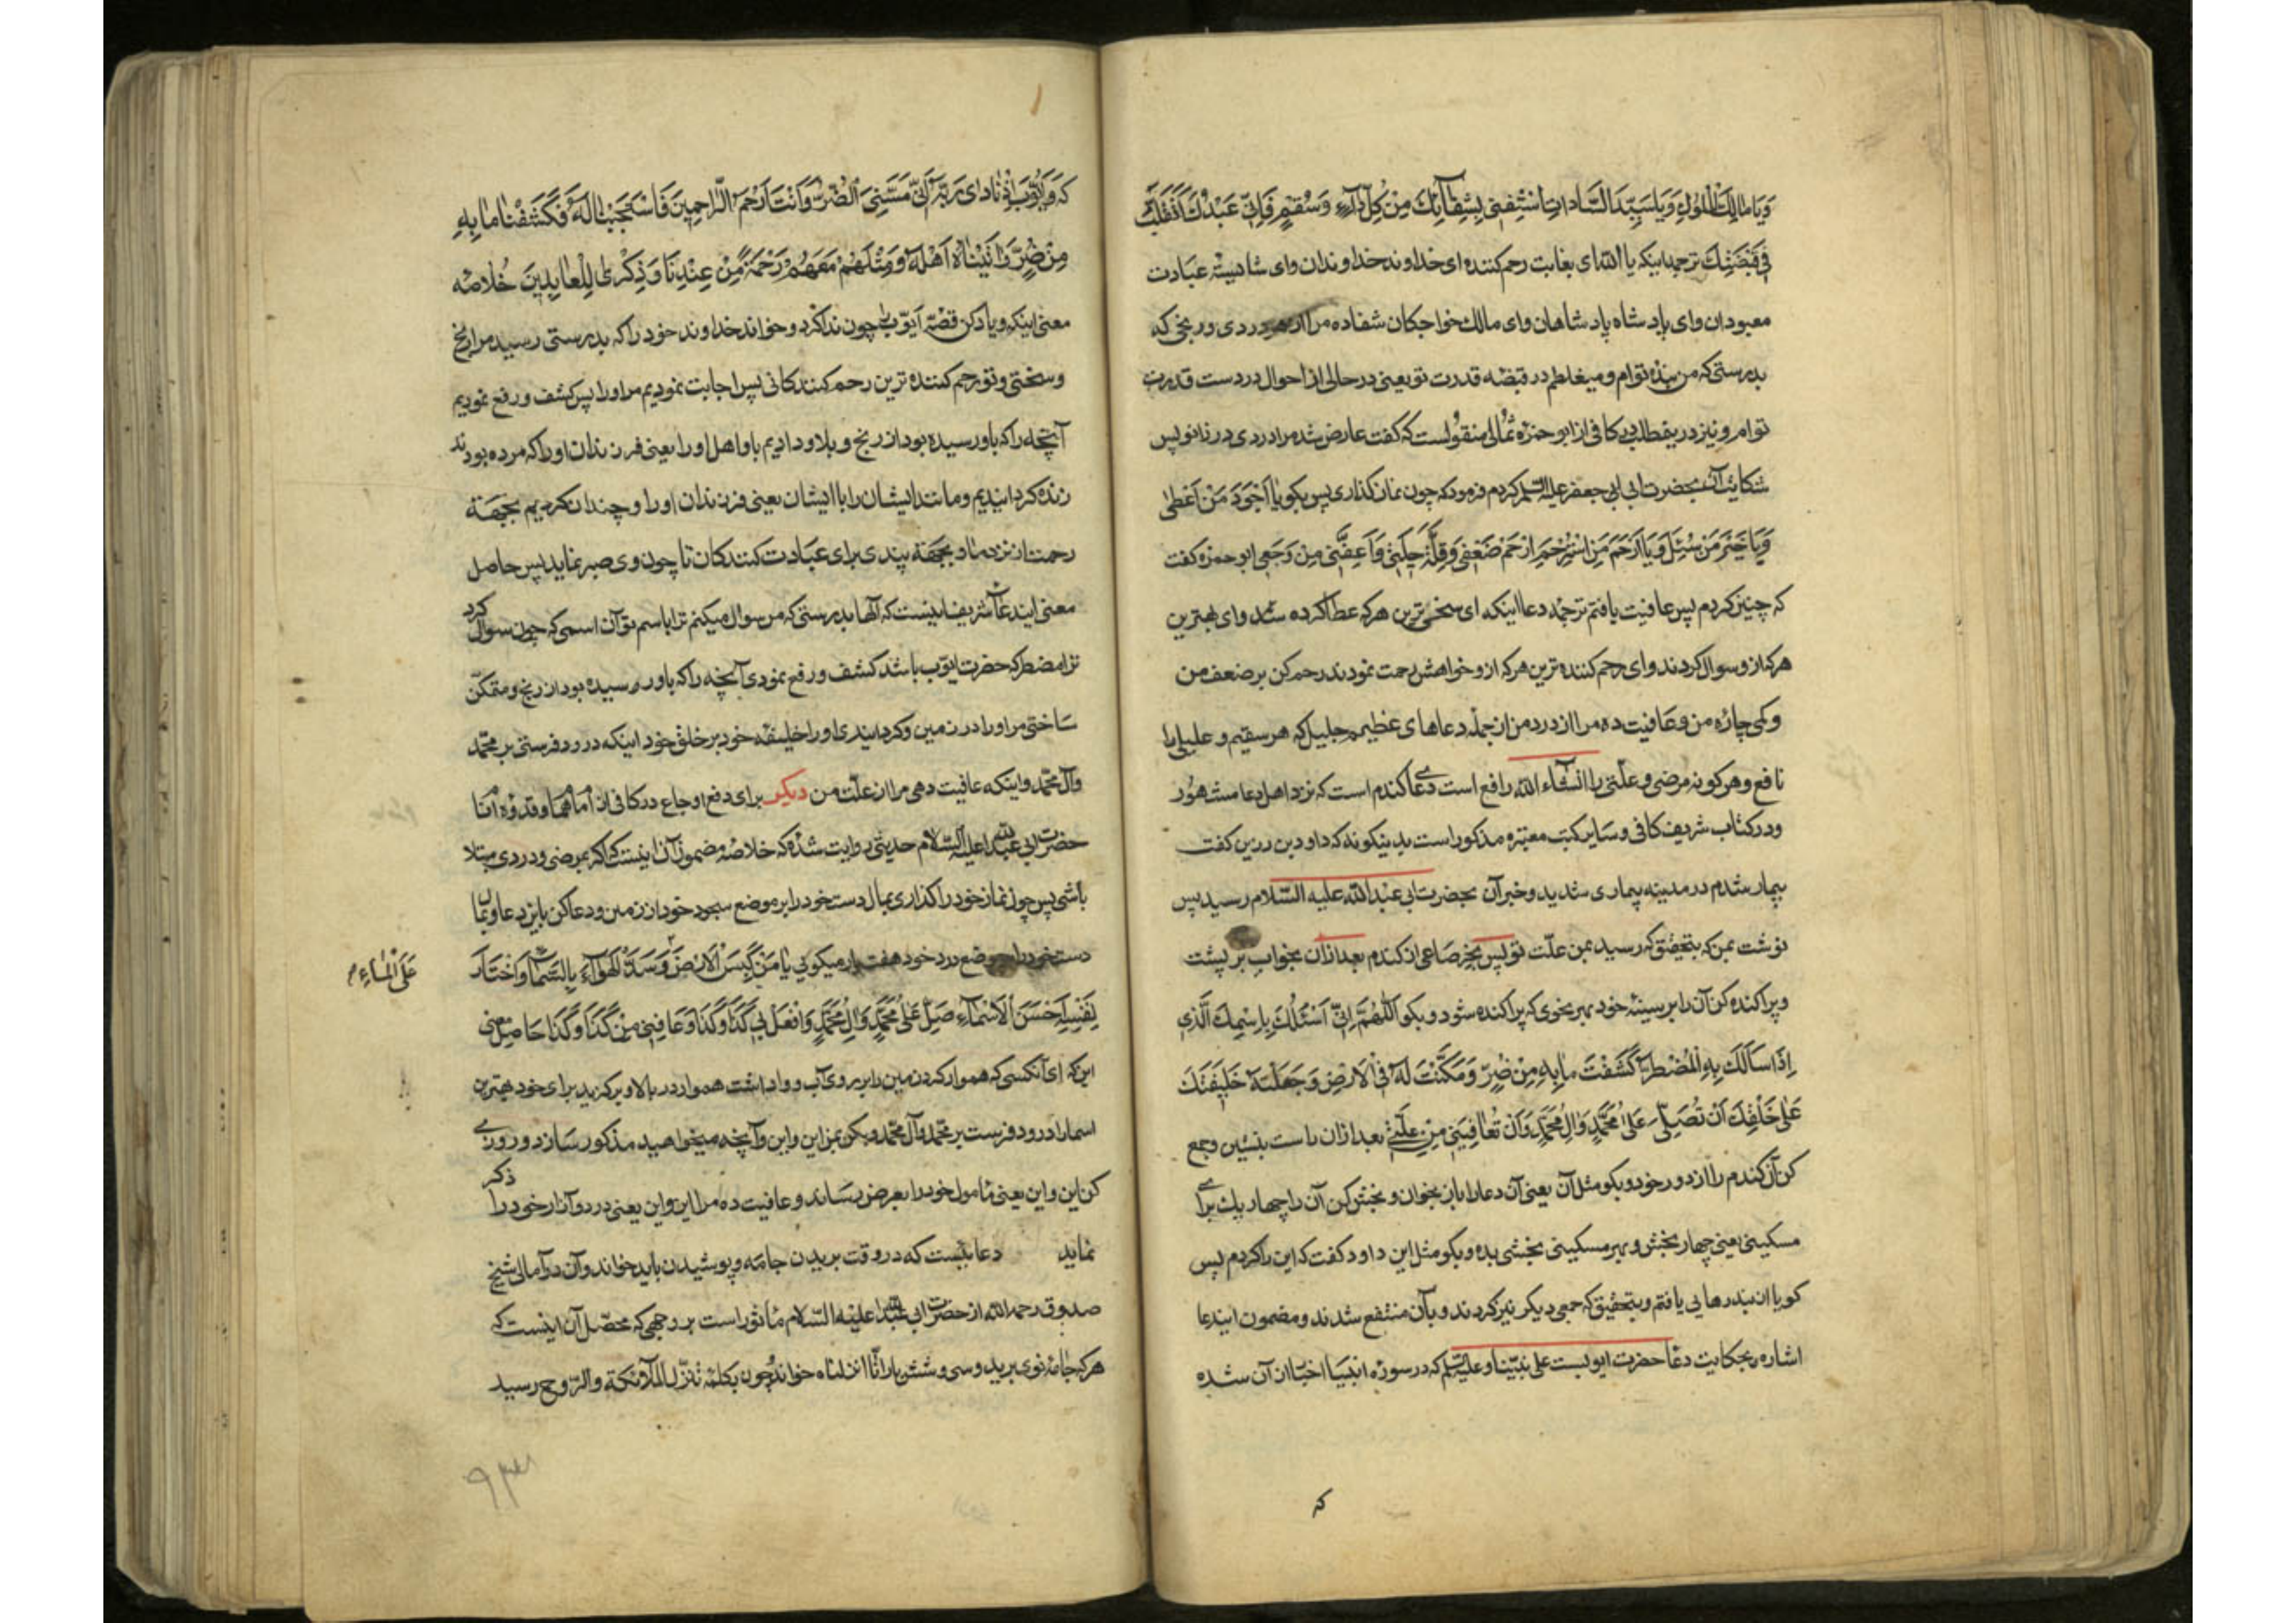 وَيَا مَالِكَ الْمُلُوكِ وَيَا سَيِّدَ السَّادَاتِ اشْفِنِي بِشِفَائِكَ مِنْ كُلِّ دَاءٍ وَسُقْمٍ فَإِنِّي عَبْدُكَ أَتَقَلَّبُ
فِي قَبْضَتِكَ ترجمه اینکه یا الله ای بغایت رحم کننده ای خداوند خداوندان وای شایسته عبادت
معبودان وای پادشاه پادشاهان وای مالک خواجکان شفا ده مرا از هر دردی ورنجی که
بدرستی که من بنده توام ومیغلطم در قبضه قدرت تو یعنی در حالی از احوال در دست قدرت
توام ونیز در در کافی از ابو حمزه ثمالی منقولست که گفت عارض شد مرا دردی در زانو پس
شکایت آن بحضرت ابی جعفر علیه السلم کردم فرمود که چون نماز گذاری پس بگو يَا أَجْوَدَ مَنْ أَعْطَىٰ
وَيَا خَيْرَ مَنْ سُئِلَ وَيَا أَرْحَمَ مَنِ اسْتُرْحِمَ ارْحَمْ ضَعْفِي وَقِلَّةَ حِيلَتِي وَاعْفِنِي مِنْ وَجَعِي ابو حمزه کفت
که چنین کردم پس عافیت یافتم ترجمه دعا اینکه ای سخی ترین هر که عطا کرده شد وای بهترین
هر که از و سوال کردند وای رحم کننده ترین هر که از و خواهش رحمت نمودند رحم کن بر ضعف من
وکمی چاره من وعافیت ده مرا از درد من از جمله دعاهای عظیمه جلیل که هر سقیم و علیلی را
نافع وهر کونه مرضی وعلتی را انشاء الله رافع است دعای کندم است که نزد اهل دعا مشهور
ودر کتاب شریف کافی وسایر کتب معتبره مذکور است بدینکونه که داود بن رزین کفت
بیمار شدم در مدینه بیماری شدید وخبر آن بحضرت ابی عبدالله علیه السلام رسید پس
نوشت بمن که بتحقیق که رسید بمن علت تو پس بخر صاعی از کندم بعد ازان بخواب بر پشت
وپراکنده کن آن را بر سینه خود بهر نحوی که پراکنده شود وبکو اَللّٰهُمَّ اِنِّي اَسْئَلُكَ بِاسْمِكَ الَّذِي
اِذَا سَأَلَكَ بِهِ الْمُضْطَرُّ كَشَفْتَ مَا بِهِ مِنْ ضُرٍّ وَمَكَّنْتَ لَهُ فِي الْاَرْضِ وَجَعَلْتَهُ خَلِيفَتَكَ
عَلَى خَلْقِكَ اَنْ تُصَلِّيَ عَلَىٰ مُحَمَّدٍ وَاٰلِ مُحَمَّدٍ وَاَنْ تُعَافِيَنِي مِنْ عِلَّتِي بعد ازان راست بنشین وجمع
کن آن کندم را از دور خود وبکو مثل آن یعنی آن دعا را باز بخوان وبخش کن آن را چهار یک برای
مسکینی یعنی چهار بخش وبهر مسکینی بخشی بده وبکو مثل این داود کفت که این را کردم پس
کویا از بند رهایی یافتم وبتحقیق که جمعی دیکر نیز کردند وبآن منتفع شدند ومضمون ایندعا
اشاره بحکایت دعا حضرت ایوبست علی نبینا وعلیه السلم که در سوره انبیا اخبار از آن شده
که
که وَاَيُّوبَ اِذْ نَادَىٰ رَبَّهُ اَنِّي مَسَّنِيَ الضُّرُّ وَاَنْتَ اَرْحَمُ الرَّاحِمِينَ فَاسْتَجَبْنَا لَهُ فَكَشَفْنَا مَا بِهِ
مِنْ ضُرٍّ وَاٰتَيْنَاهُ اَهْلَهُ وَمِثْلَهُمْ مَعَهُمْ رَحْمَةً مِنْ عِنْدِنَا وَذِكْرَىٰ لِلْعَابِدِينَ خلاصه
معنی اینکه ویاد کن قصه ایوب را چون ندا کرد وخواند خداوند خود را که بدرستی رسید مرا رنج
وسختی وتو رحم کننده ترین رحم کنندکانی پس اجابت نمودیم مراورا پس کشف ورفع نمودیم
آنچه را که باو رسیده بود از رنج وبلا ودادیم باو اهل او را یعنی فرزندان او را که مرده بودند
زنده کردانیدیم ومانند ایشان را با ایشان یعنی فرزندان او را دو چندان کردیم بجهة
رحمت از نزد ما وبجهة پندی برای عبادت کنندکان تا چون وی صبر نمایند پس حاصل
معنی ایندعا شریف اینست که الها بدرستی که من سوال میکنم ترا باسم تو آن اسمی که چون سوال کرد
ترا مضطر که حضرت ایوب باشد کشف ورفع نمودی آنچه را که باو رسیده بود از رنج ومتمکن
ساختی مراورا در زمین وکردانیدی او را خلیفه خود بر خلق خود اینکه درود فرستی بر محمد
وآل محمد واینکه عافیت دهی مرا از علت من دیکر برای دفع اوجاع در کافی از امام هما وقدوه انا
حضرت ابی عبدالله علیه السلام حدیثی روایت شده که خلاصه مضمون آن اینست که اکر بمرضی ودردی مبتلا
باشی پس چون نماز خود را کذاری بمال دست خود را بر موضع سجود خود از زمین ودعا کن باین دعا وبمال
دست خود را بر موضع درد خود هفت بار میکویی يَا مَنْ كَبَسَ الْاَرْضَ وَسَدَّ الْهَوَاءَ بِالسَّمَاءِ وَاخْتَارَ
عَلَى الْمَاءِ
لِنَفْسِهِ اَحْسَنَ الْاَسْمَاءِ صَلِّ عَلَىٰ مُحَمَّدٍ وَاٰلِ مُحَمَّدٍ وَافْعَلْ بِي كَذَا وَكَذَا وَعَافِنِي مِنْ كَذَا وَكَذَا حاصل معنی
این که ای آنکسی که هموار کرد زمین را بر روی آب وواداشت هموار در بالا وبرکزید برای خود بهترین
اسما را درود فرست بر محمد وآل محمد وبکن بمن این واین وآنچه میخواهید مذکور سازد وروزی
کن این واین یعنی مامول خود را بعرض رساند وعافیت ده مرا از این واین یعنی درد وآزار خود را ذکر
نماید دعاییست که در وقت بریدن جامه وپوشیدن باید خواند وآن در آمالی شیخ
صدوق رحمه الله از حضرت ابی عبدالله علیه السلام ماثور است بر وجهی که محصل آن اینست که
هر که جامه نوی برید وسی وشش بار انا انزلناه خواند وچون بکلمه تنزل الملائکة والروح رسید